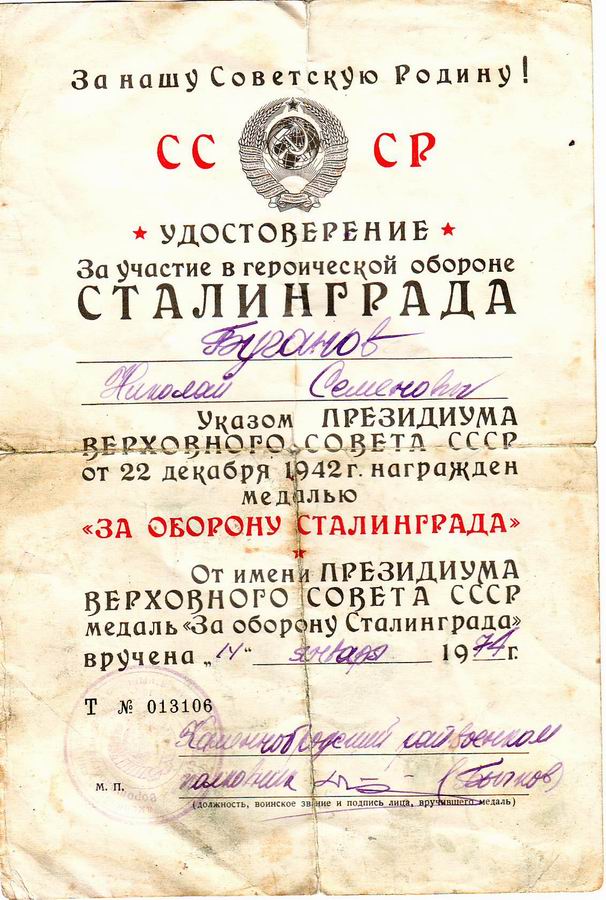 За нашу Советскую Родину!
СССР
УДОСТОВЕРЕНИЕ
За участие в героической обороне
СТАЛИНГРАДА
Буганов
Николай Семенович
Указом ПРЕЗИДИУМА
ВЕРХОВНОГО СОВЕТА СССР
от 22 декабря 1942 г. награжден
медалью
«ЗА ОБОРОНУ СТАЛИНГРАДА»
От имени ПРЕЗИДИУМА
ВЕРХОВНОГО СОВЕТА СССР
медаль «За оборону Сталинграда»
вручена „14" января 1974 г.
Т № 013106
Каменнобродский райвоенком
М. П. полковник (Бычков)
(должность, воинское звание и подпись лица, вручившего медаль)